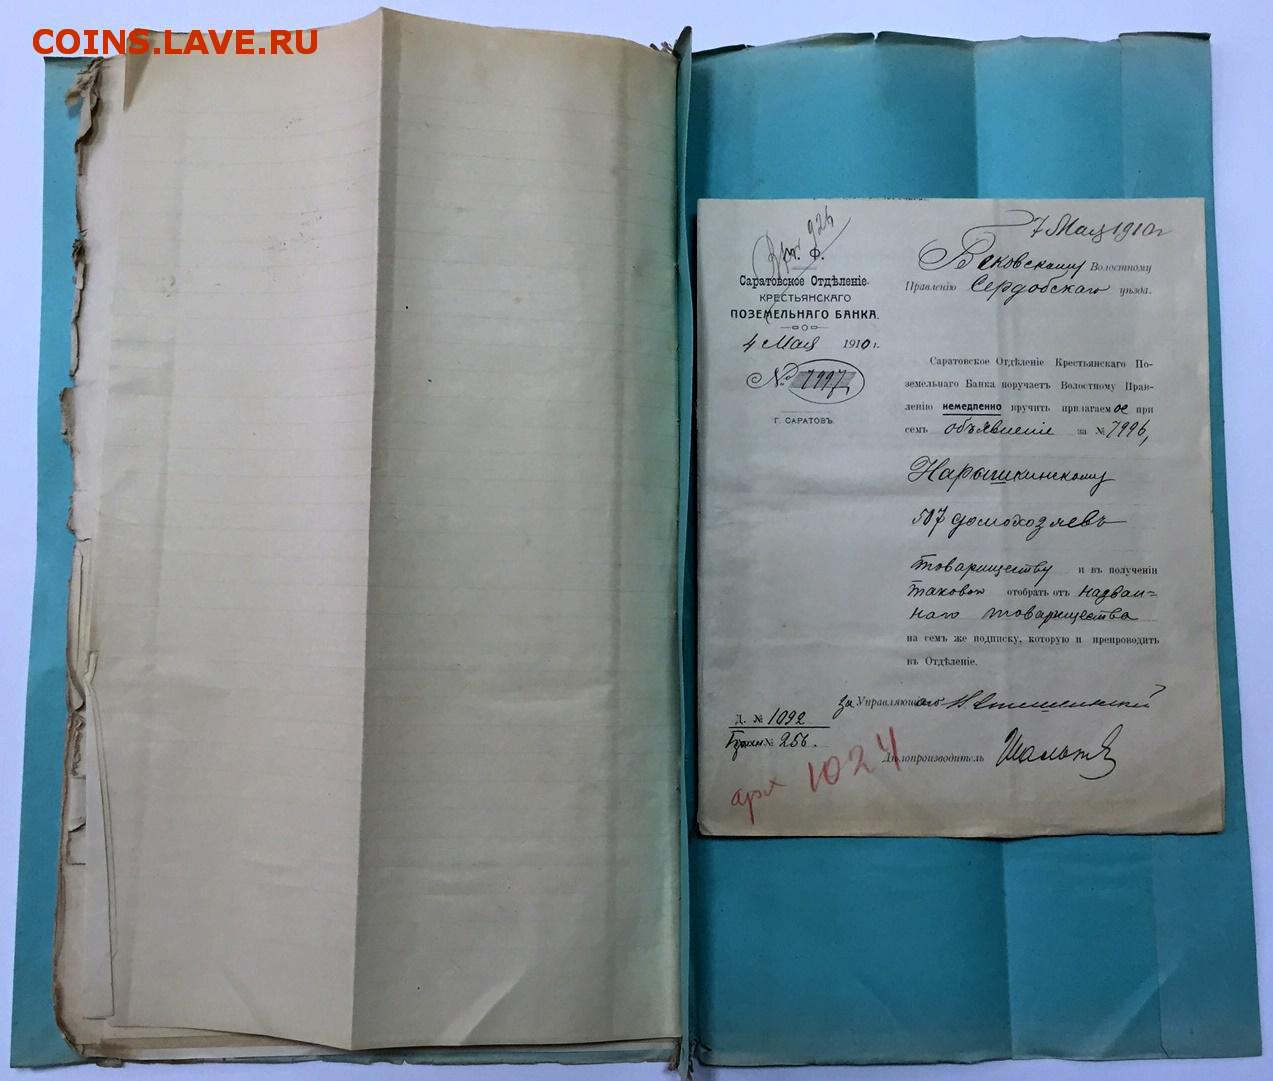 COINS.LAVE.RU
7 Мая 1910 г
926
М. Ф.
Саратовское Отдѣленіе
КРЕСТЬЯНСКАГО
ПОЗЕМЕЛЬНАГО БАНКА.
4 Мая 1910 г.
№ 7997
Г. САРАТОВЪ.
Бековскому Волостному
Правленію Сердобскаго уѣзда.
Саратовское Отдѣленіе Крестьянскаго По-
земельнаго Банка поручаетъ Волостному Прав-
ленію немедленно вручить прилагаемое при
семъ объявленіе за № 7996,
Нарышкинскому
507 домохозяевъ
товариществу и въ полученіи
такового отобрать отъ назван-
наго товарищества
на семъ же подписку, которую и препроводить
въ Отдѣленіе.
За Управляющаго
Дѣлопроизводитель
Д. № 1092
№ 256.
арх 1024